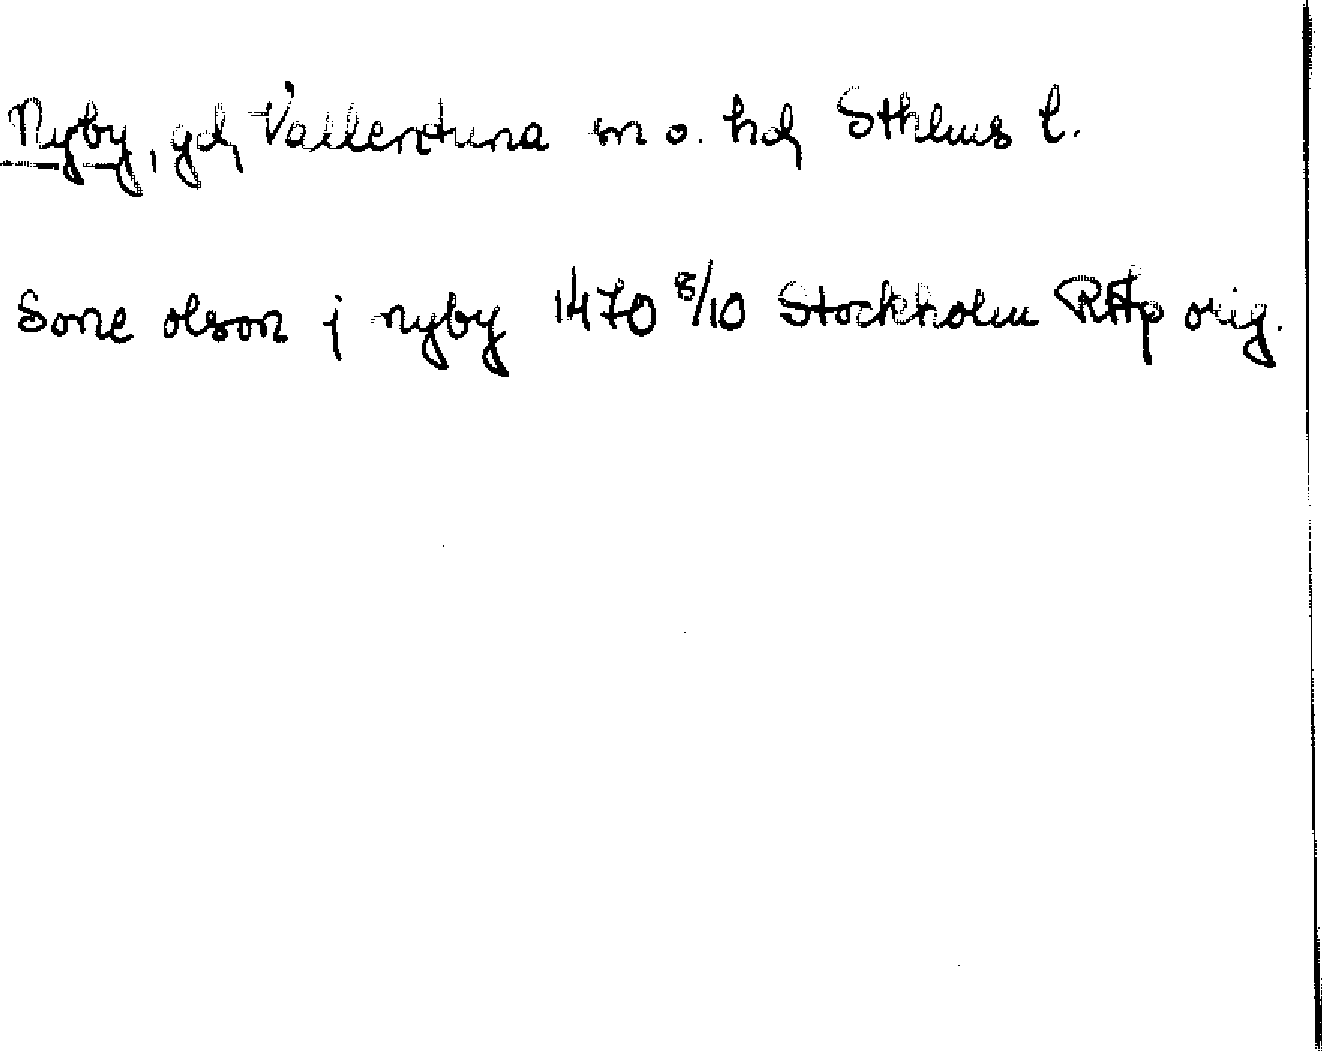 Nyby, gd, Vallentuna sn o. hd, Sthlms l.
Sone olson j nyby 1470 8/10 Stockholm RAp orig.